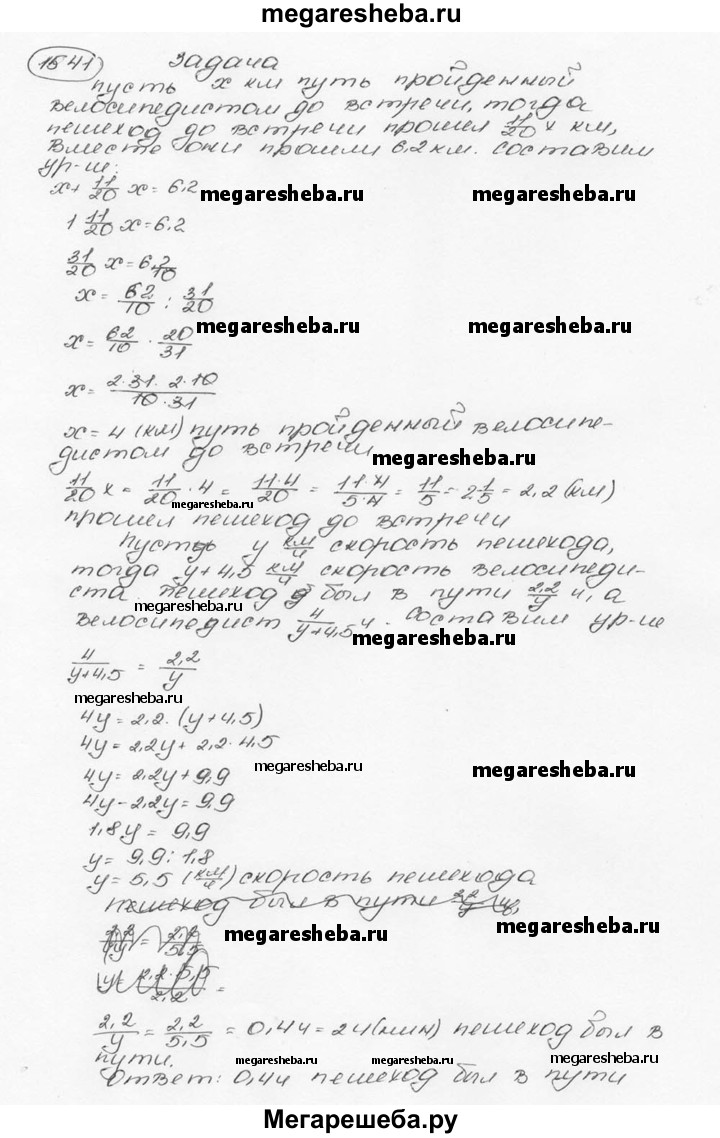 megaresheba.ru
1541 Задача
пусть x км путь пройденный
велосипедистом до встречи, тогда
пешеход до встречи прошел 11/20 x км,
вместе они прошли 6,2 км. составим
ур-ие:
x + 11/20 x = 6,2 megaresheba.ru megaresheba.ru
1 11/20 x = 6,2
31/20 x = 6 2/10
x = 62/10 : 31/20
megaresheba.ru megaresheba.ru
x = 62/10 · 20/31
x = 2·31·2·10/10·31
x = 4 (км) путь пройденный велосипе-
дистом до встречи megaresheba.ru
11/20 x = 11/20 · 4 = 11·4/20 = 11·4/5·4 = 11/5 = 2 1/5 = 2,2 (км)
megaresheba.ru
прошел пешеход до встречи
Пусть y км/ч скорость пешехода,
тогда y+4,5 км/ч скорость велосипеди-
ста. пешеход был в пути 2,2/y ч, а
megaresheba.ru
велосипедист 4/y+4,5 ч. составим ур-ие
megaresheba.ru
4/y+4,5 = 2,2/y
megaresheba.ru
4y = 2,2·(y+4,5)
4y = 2,2y + 2,2·4,5
megaresheba.ru megaresheba.ru
4y = 2,2y + 9,9
4y - 2,2y = 9,9
1,8y = 9,9
y = 9,9 : 1,8
y = 5,5 (км/ч) скорость пешехода
пешеход был в пути
megaresheba.ru megaresheba.ru
2,2/y = 2,2/5,5 = 0,4ч = 24(мин) пешеход был в
пути. megaresheba.ru megaresheba.ru
Ответ: 0,4ч пешеход был в пути
Мегарешеба.ру